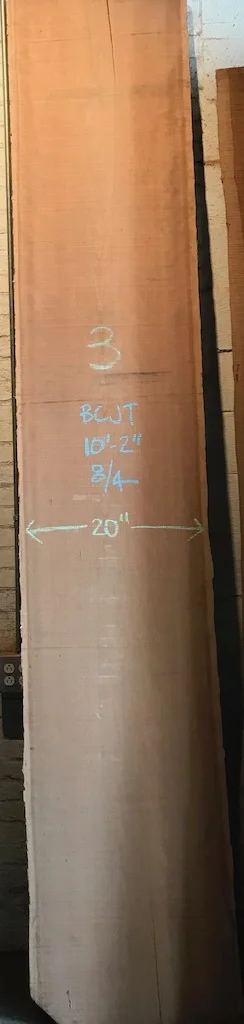 3
BCJT
10'-2"
8/4
20"